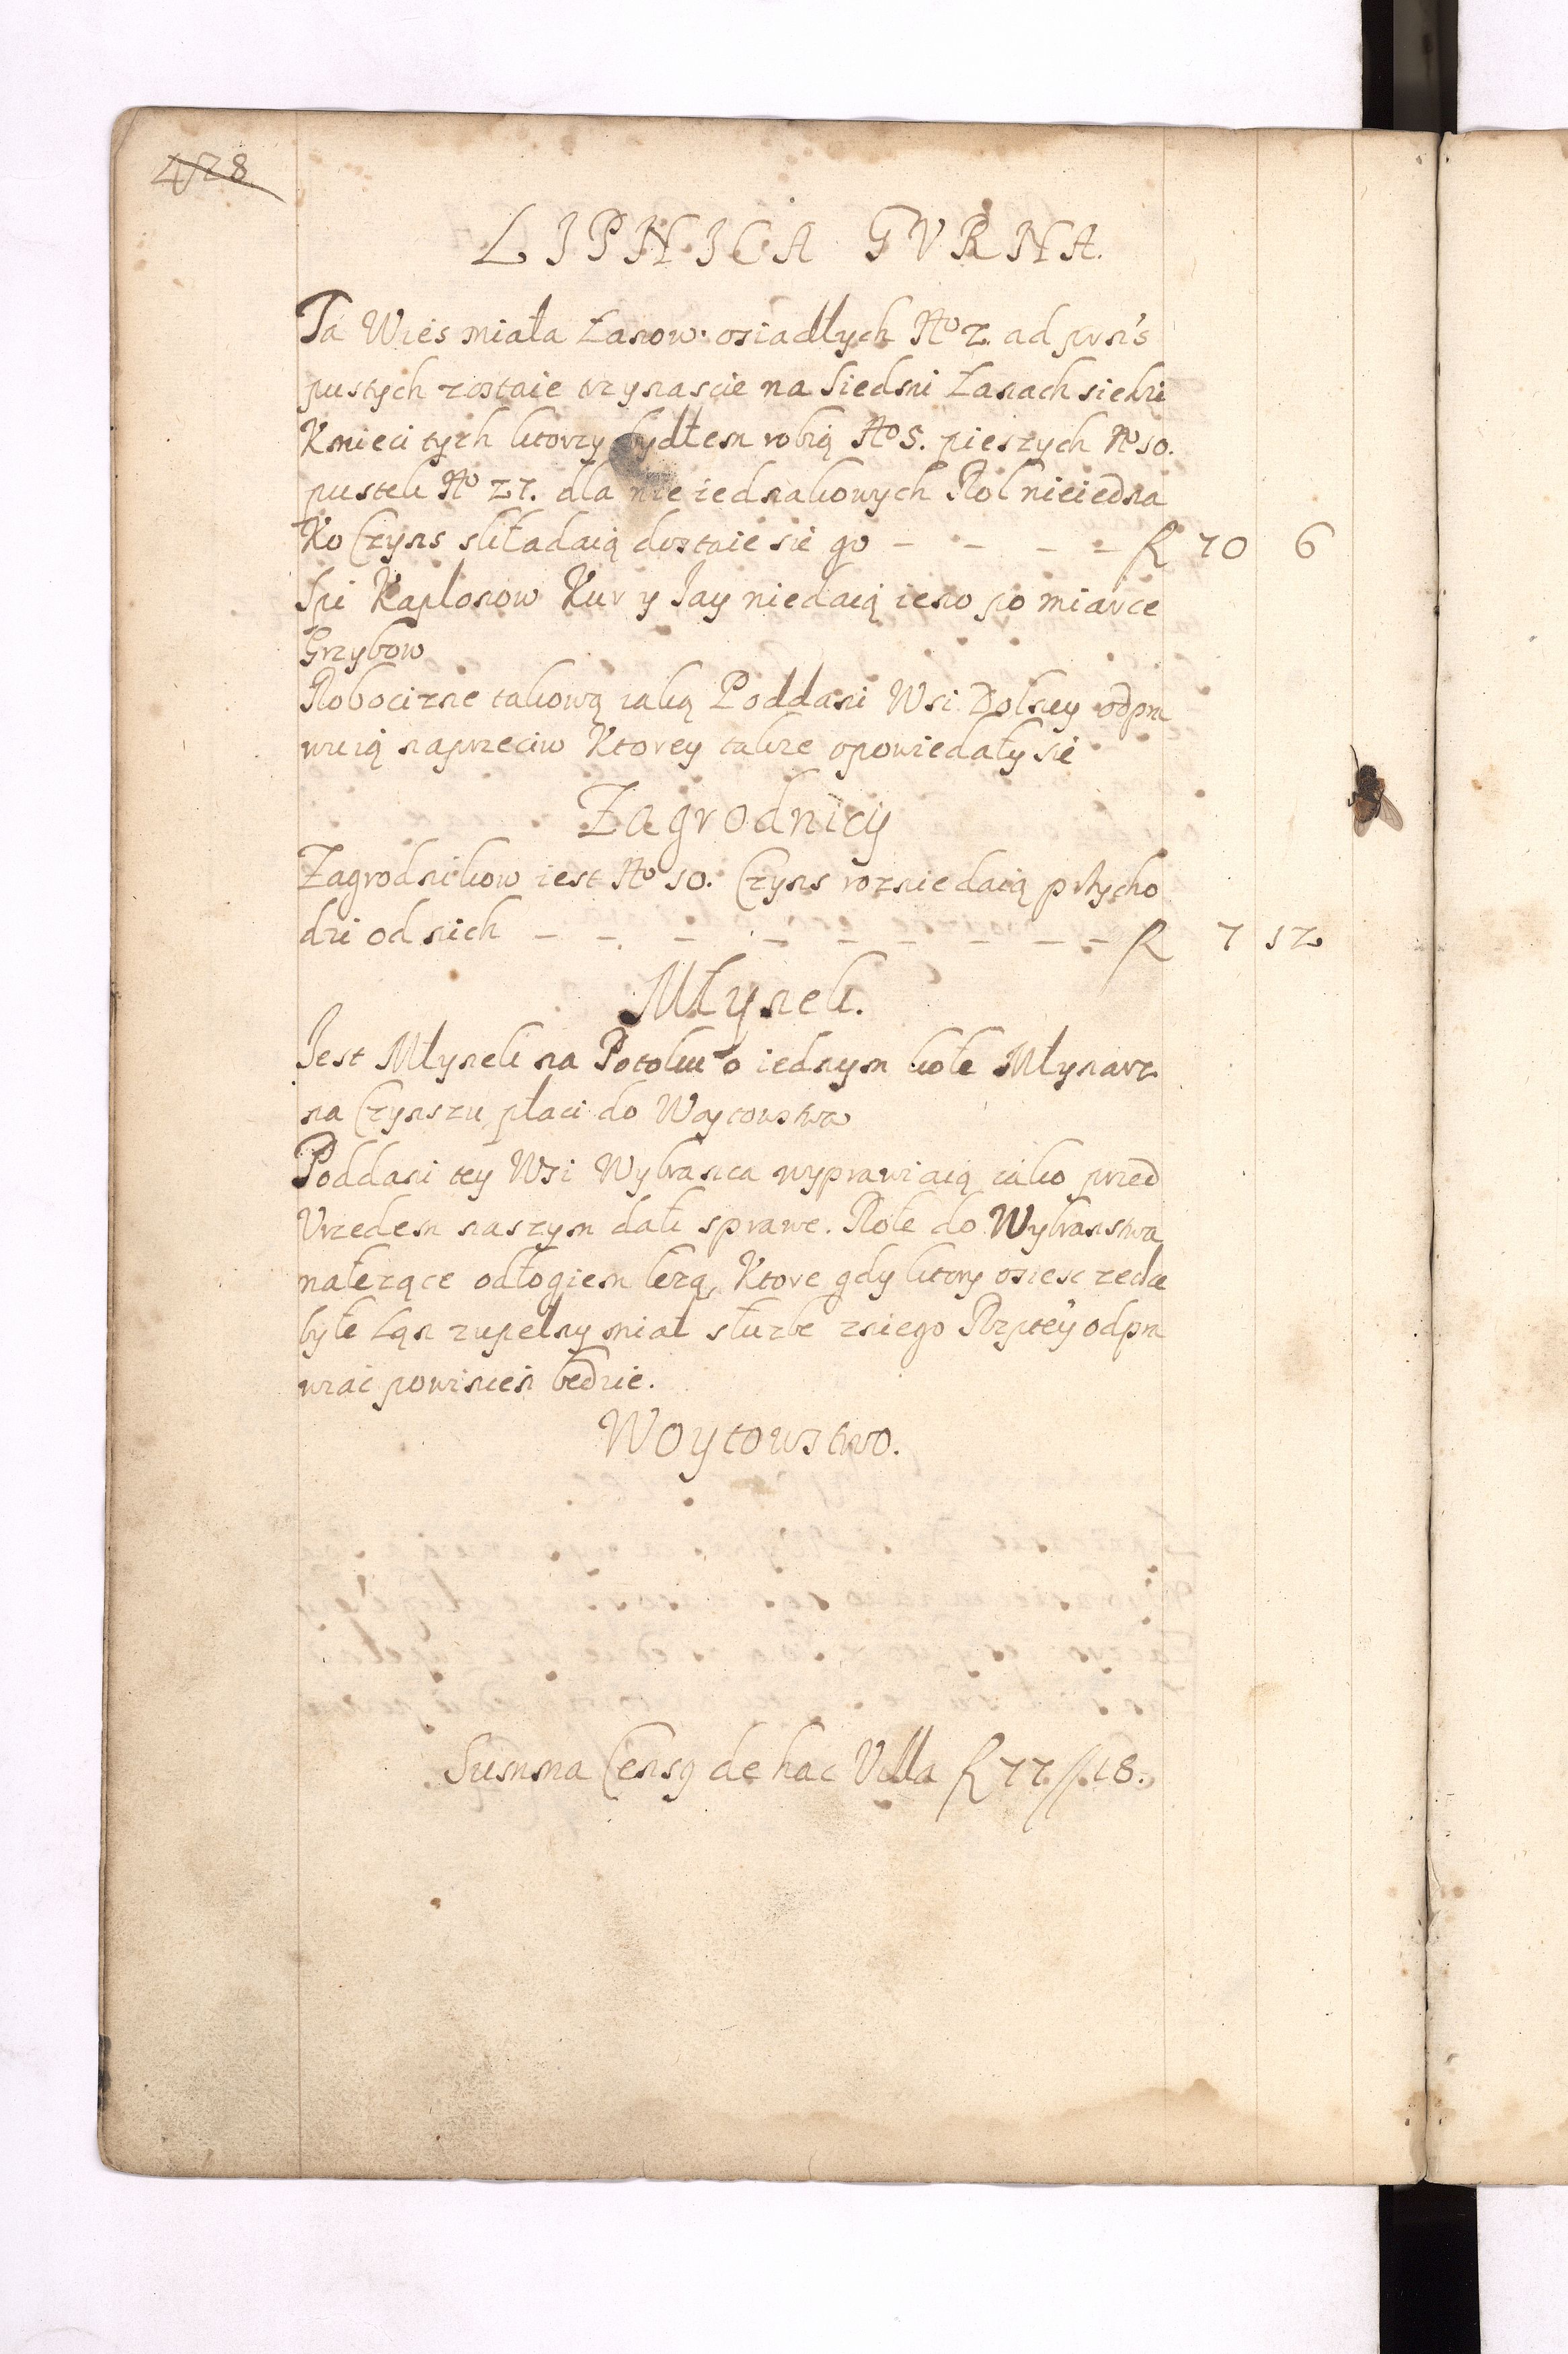 428
LIPNICA GVRNA.
Ta Wies miała Łanow osiadłych No 2. ad prns
pustych zostaie trzynascie na Siedmi Łanach siedzi
Kmieci tych ktorzy bydłem robią No 5. pieszych No 10.
pustek No 27. dla nie iednakowych Rol nieiedna
Ko Czyns składaią dostaie sie go - - - - R 70 6
Spi Kaplonow Kur y Jay niedaią ieno po miarce
Grzybow
Robocizne takową iaką Poddani Wsi Dolney odpra
wuią naprzeciw Ktorey takze opowiedały sie
Zagrodnicy
Zagrodnikow iest No 10. Czyns roznie daią przycho
dzi od nich - - - - - - - - - R 7 12
Młynek.
Jest Młynek na Potoku o iednym kole Młynarz
na Czynszu płaci do Woytowstwa
Poddani tey Wsi Wybranca wyprawiaią iako przed
Vrzedem naszym dali sprawe. Role do Wybranstwa
należące odłogiem leżą, Ktore gdy ktory osiesc zechce
byle Łąn zupelny miał służbe zniego Rzptey odpra
wiac powinien bedzie.
Woytowstwo.
Summa Censq de hac Villa R 77 // 18.